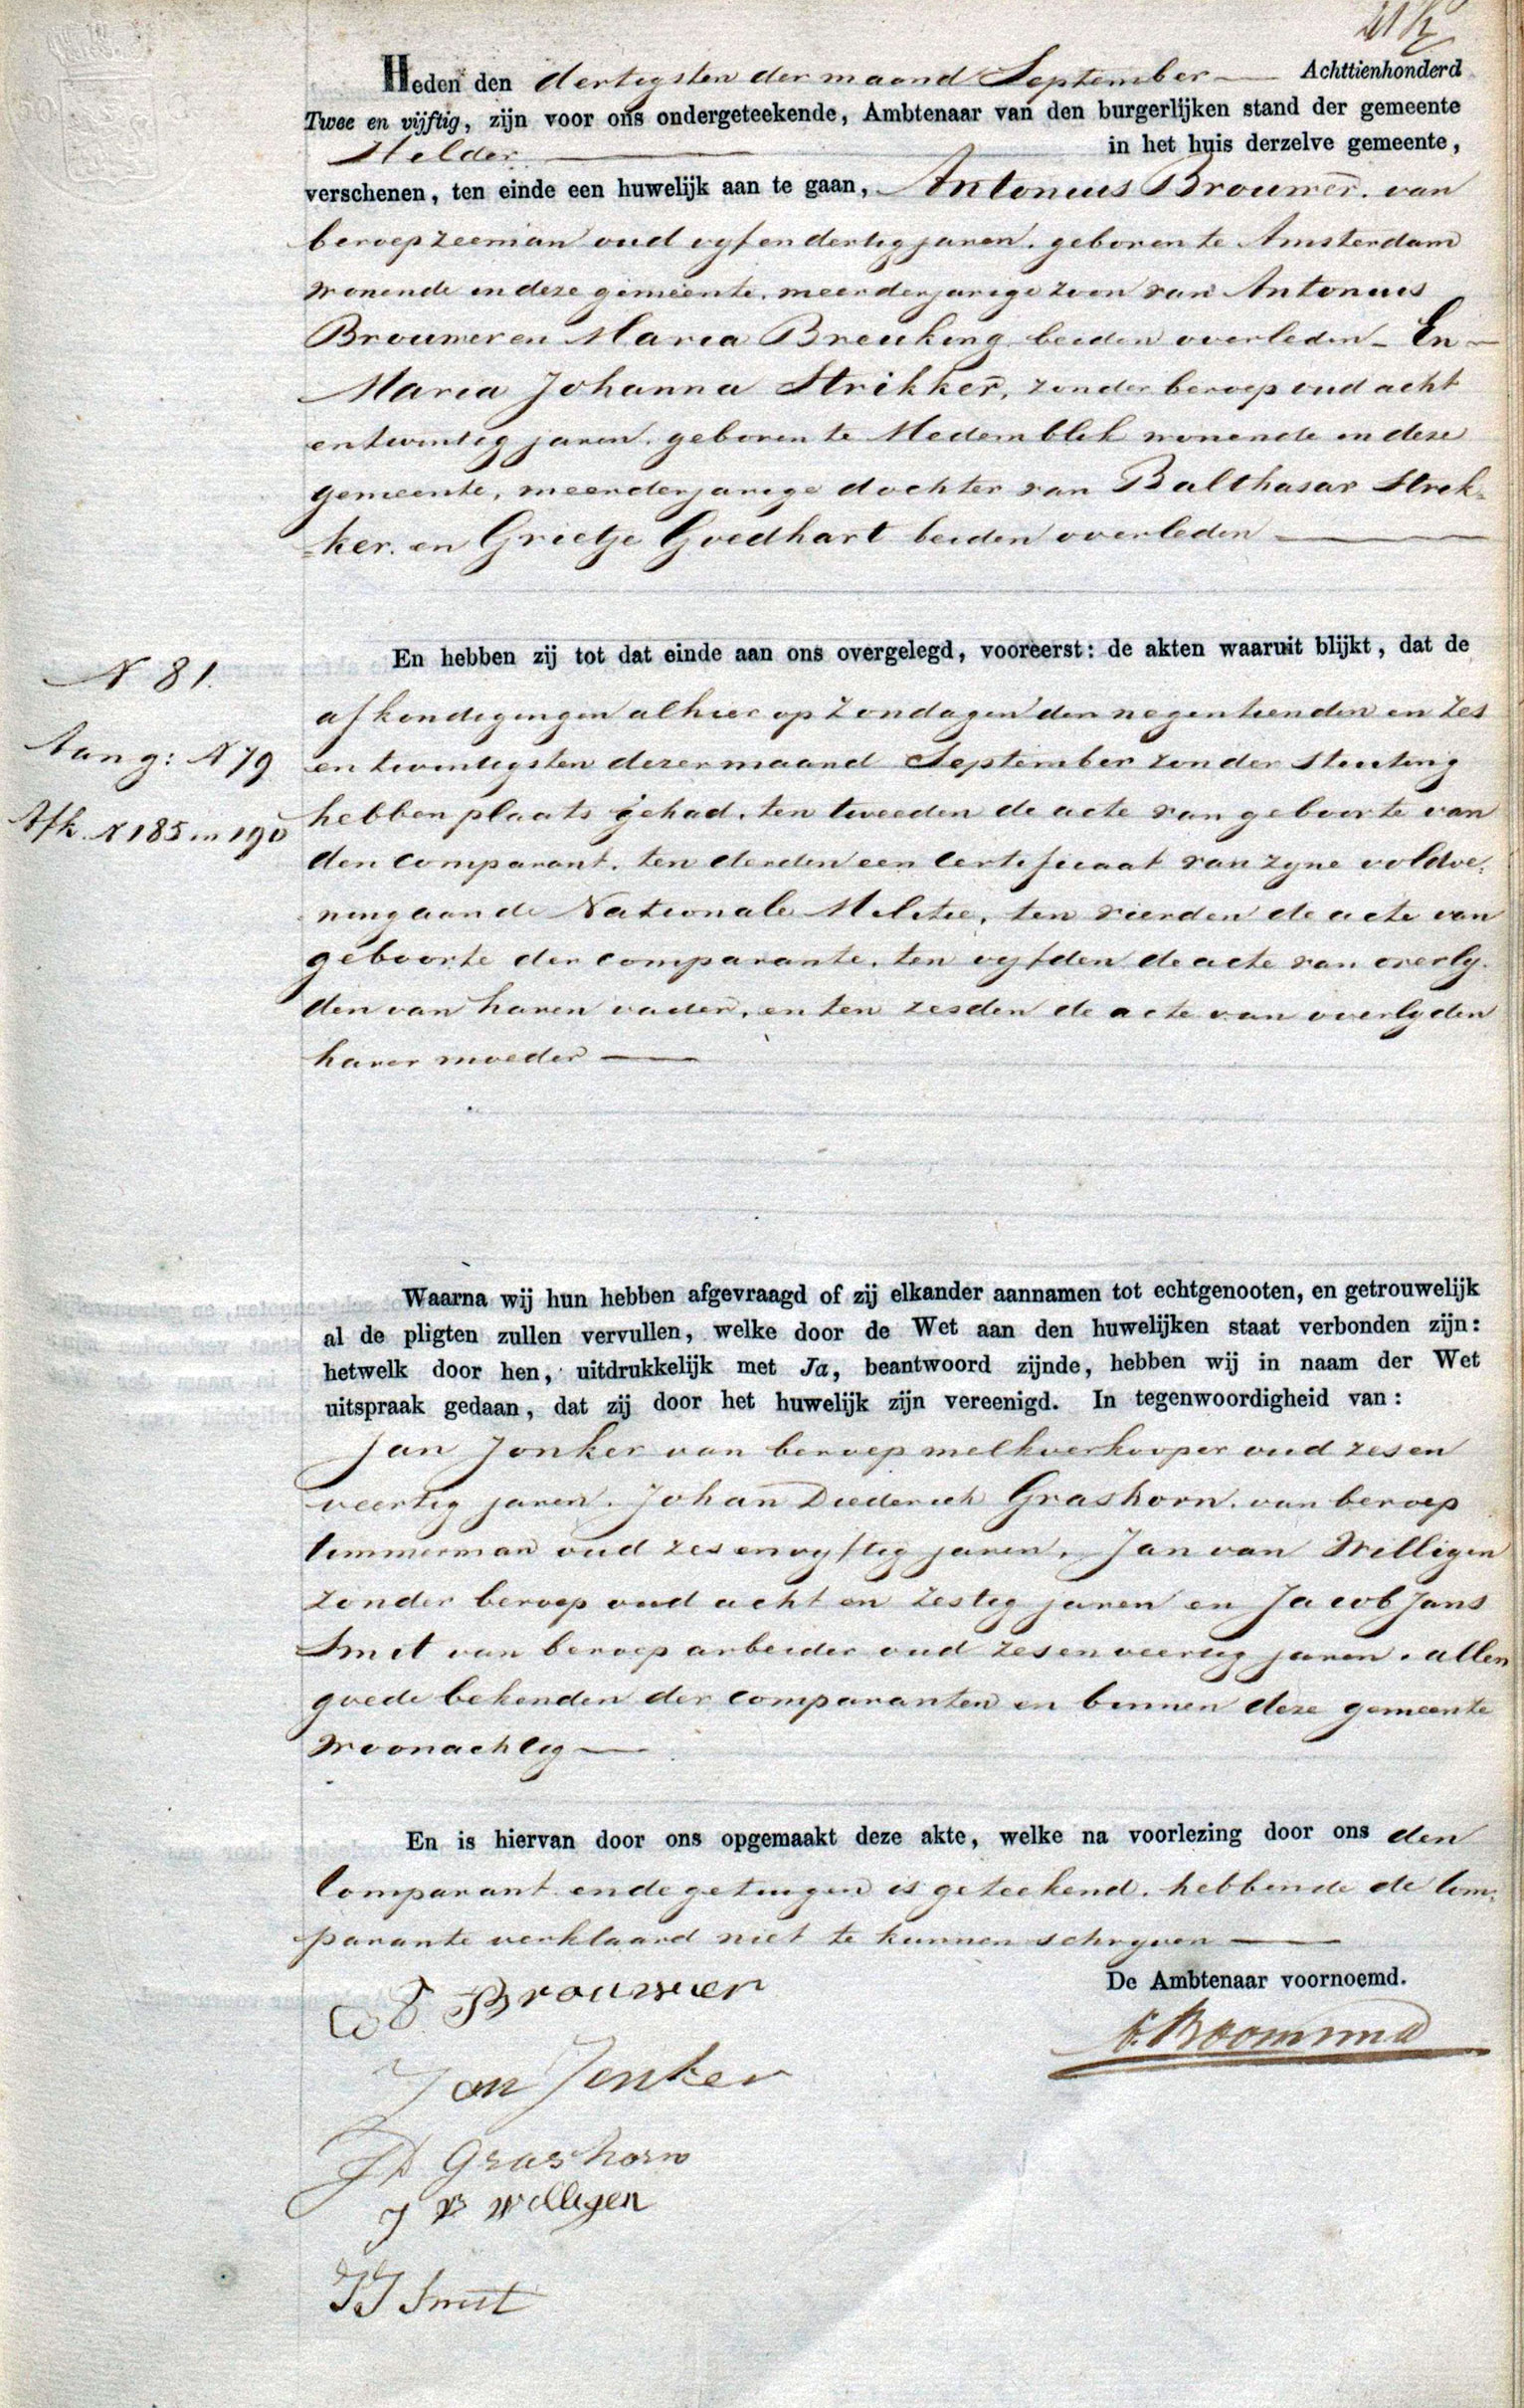 Heden den dertigsten der maand September — Achttienhonderd
Twee en vijftig, zijn voor ons ondergeteekende, Ambtenaar van den burgerlijken stand der gemeente
Helder — in het huis derzelve gemeente,
verschenen, ten einde een huwelijk aan te gaan, Antonius Brouwer. van
beroep zeeman oud vyf en dertig jaren. geboren te Amsterdam
wonende in deze gemeente. meerderjarige zoon van Antonius
Brouwer en Maria Breuking beiden overleden – En –
Maria Johanna Strikker, zonder beroep oud acht
en twintig jaren. geboren te Medemblik wonende in deze
gemeente, meerderjarige dochter van Balthasar Strik-
-ker. en Grietje Goedhart beiden overleden —
En hebben zij tot dat einde aan ons overgelegd, vooreerst: de akten waaruit blijkt, dat de
N 81.
afkondigingen alhier op Zondagen den negentienden en zes
Aang: N 79
en twintigsten dezer maand September zonder stuiting
Afk. N 185 en 190
hebben plaats gehad. ten tweeden de acte van geboorte van
den comparant. ten derden een certificaat van zyne voldoe-
ning aan de Nationale Militie, ten vierden de acte van
geboorte der comparante. ten vyfden de acte van overly-
den van haren vader, en ten zesden de acte van overlyden
harer moeder —
Waarna wij hun hebben afgevraagd of zij elkander aannamen tot echtgenooten, en getrouwelijk
al de pligten zullen vervullen, welke door de Wet aan den huwelijken staat verbonden zijn:
hetwelk door hen, uitdrukkelijk met Ja, beantwoord zijnde, hebben wij in naam der Wet
uitspraak gedaan, dat zij door het huwelijk zijn vereenigd. In tegenwoordigheid van:
Jan Jonker van beroep melkverkooper oud zes en
veertig jaren. Johan Diederich Grashorn. van beroep
timmerman oud zes en vyftig jaren, Jan van Willigen
zonder beroep oud acht en zestig jaren en Jacob Jans
Smit van beroep arbeider oud zes en veertig jaren. allen
goede bekenden der comparanten en binnen deze gemeente
woonachtig —
En is hiervan door ons opgemaakt deze akte, welke na voorlezing door ons den
Comparant en de getuigen is geteekend. hebbende de Com-
parante verklaard niet te kunnen schryven —
De Ambtenaar voornoemd.
Brouwer
Jan Jonker
JD Grashorn
J v Willigen
JJ Smit